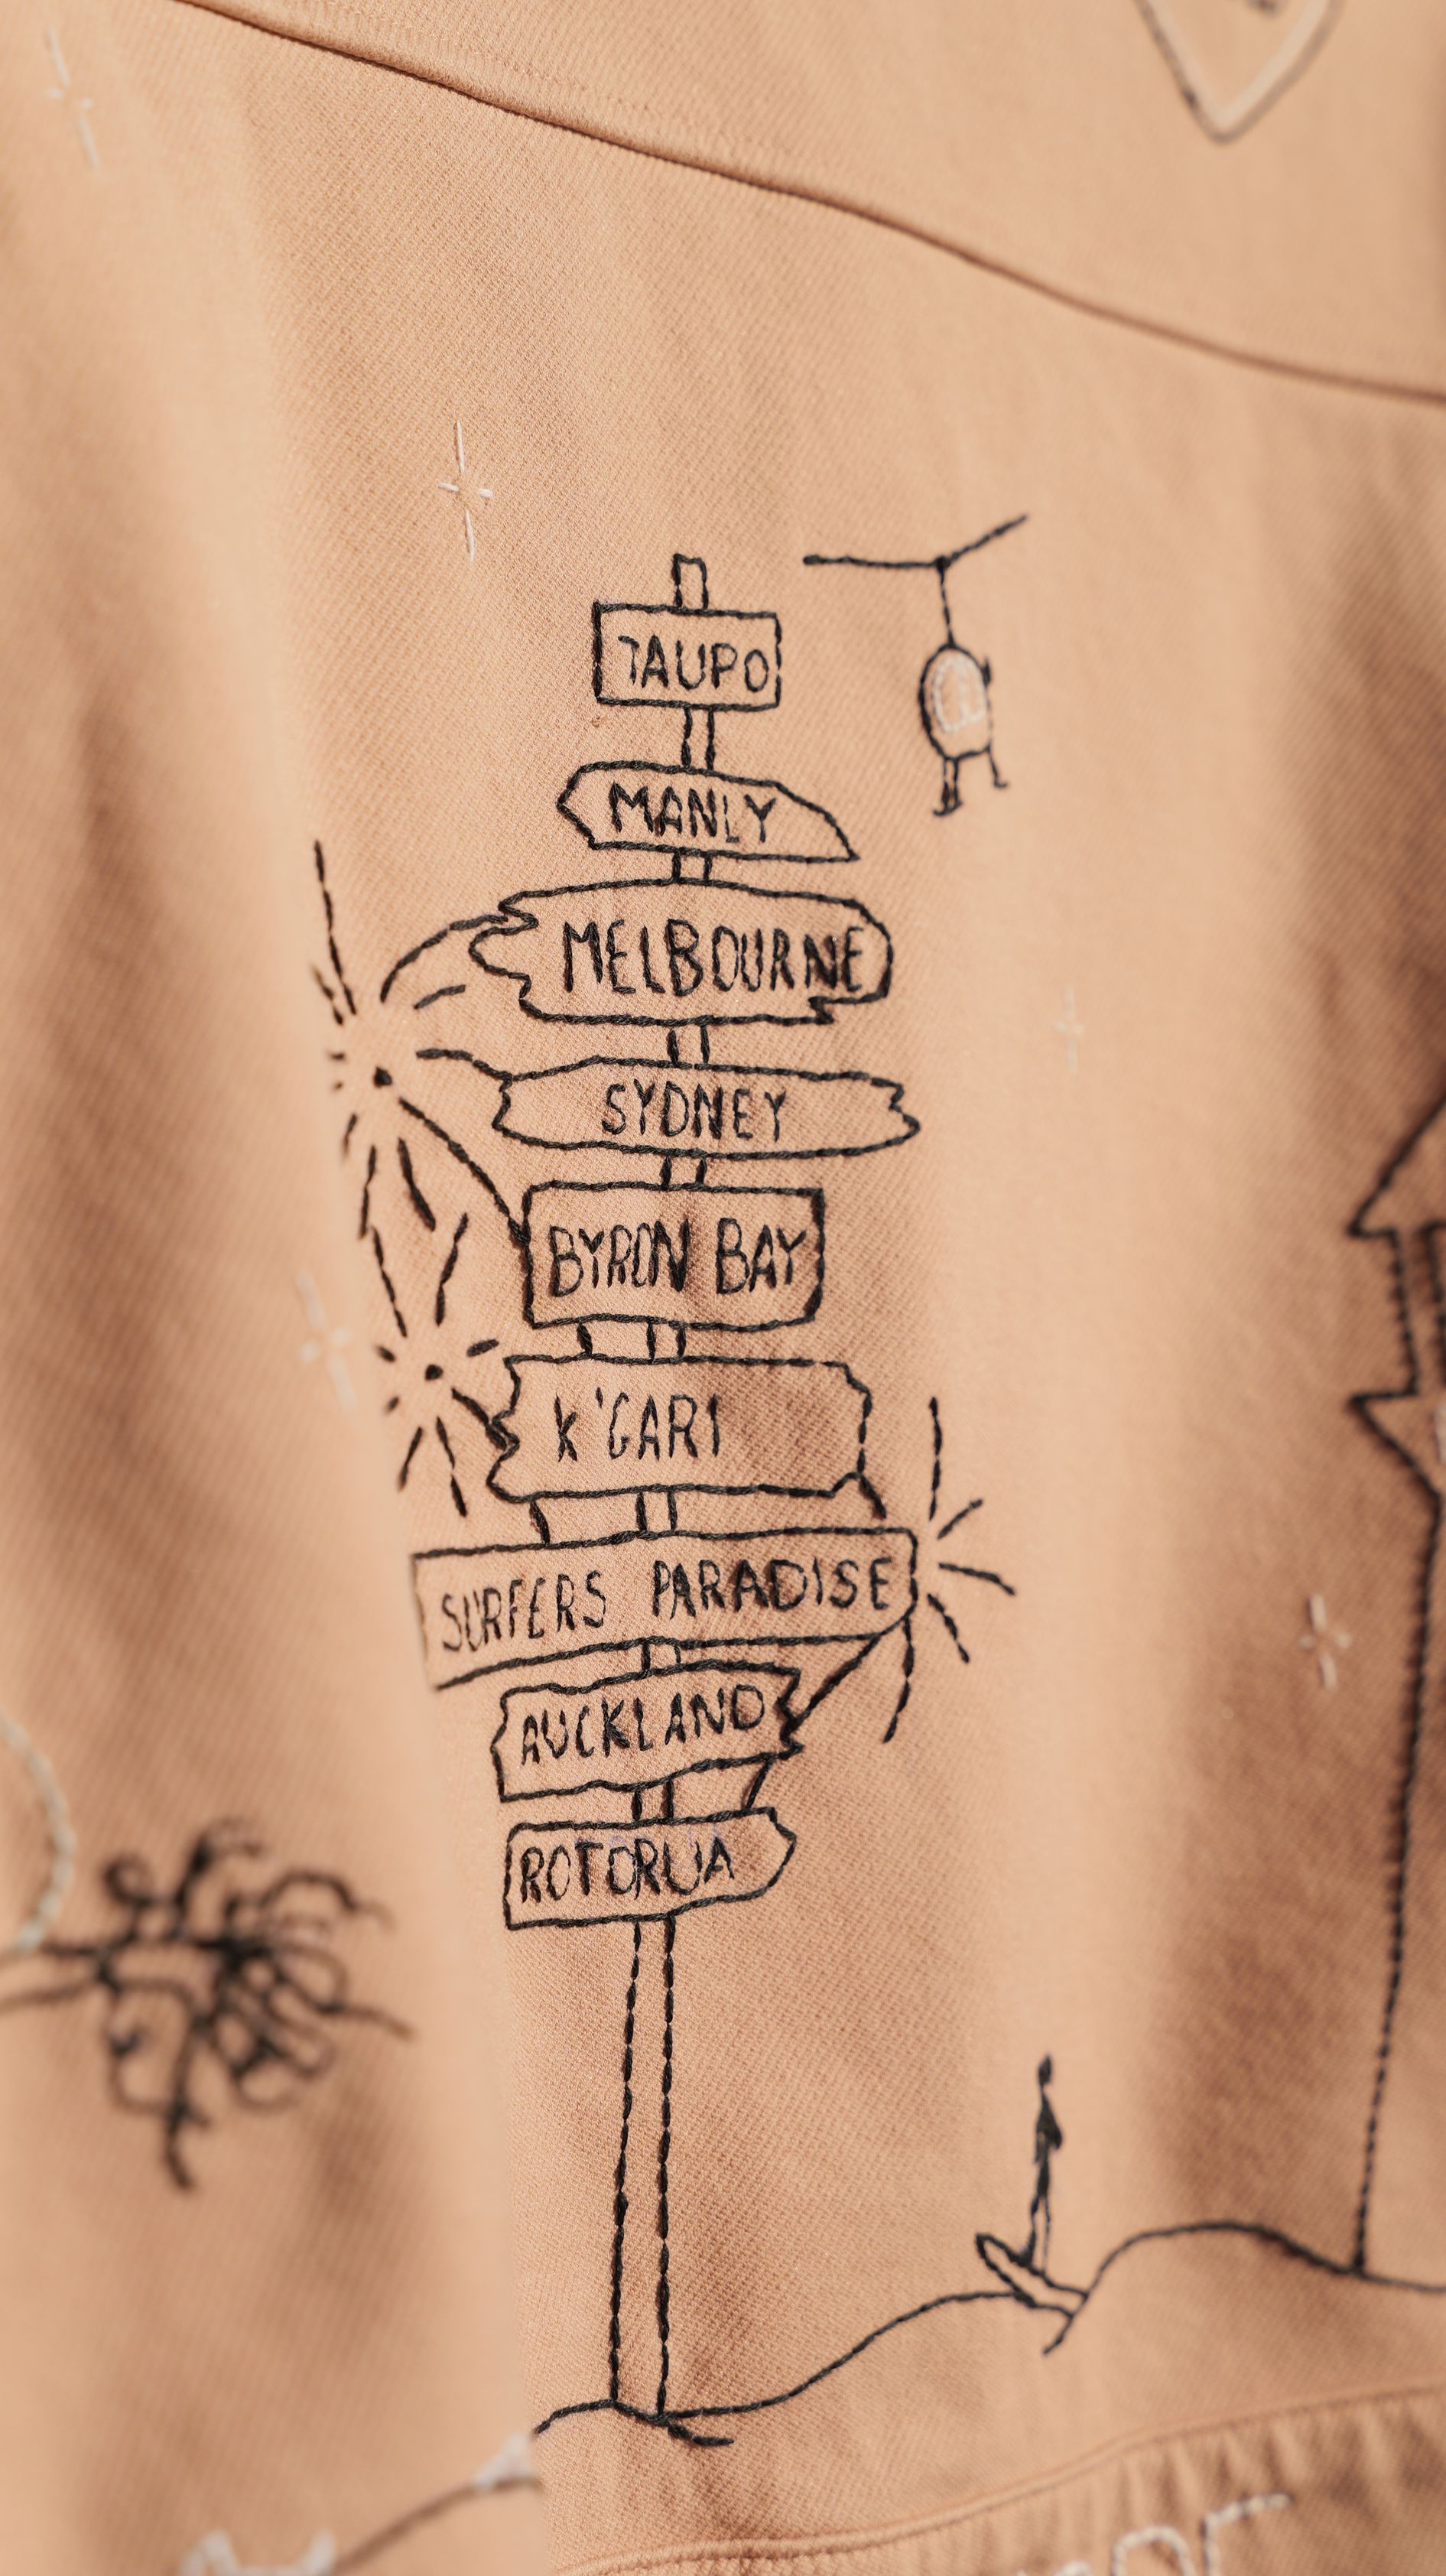 TAUPO
MANLY
MELBOURNE
SYDNEY
BYRON BAY
K'GARI
SURFERS PARADISE
AUCKLAND
ROTORUA